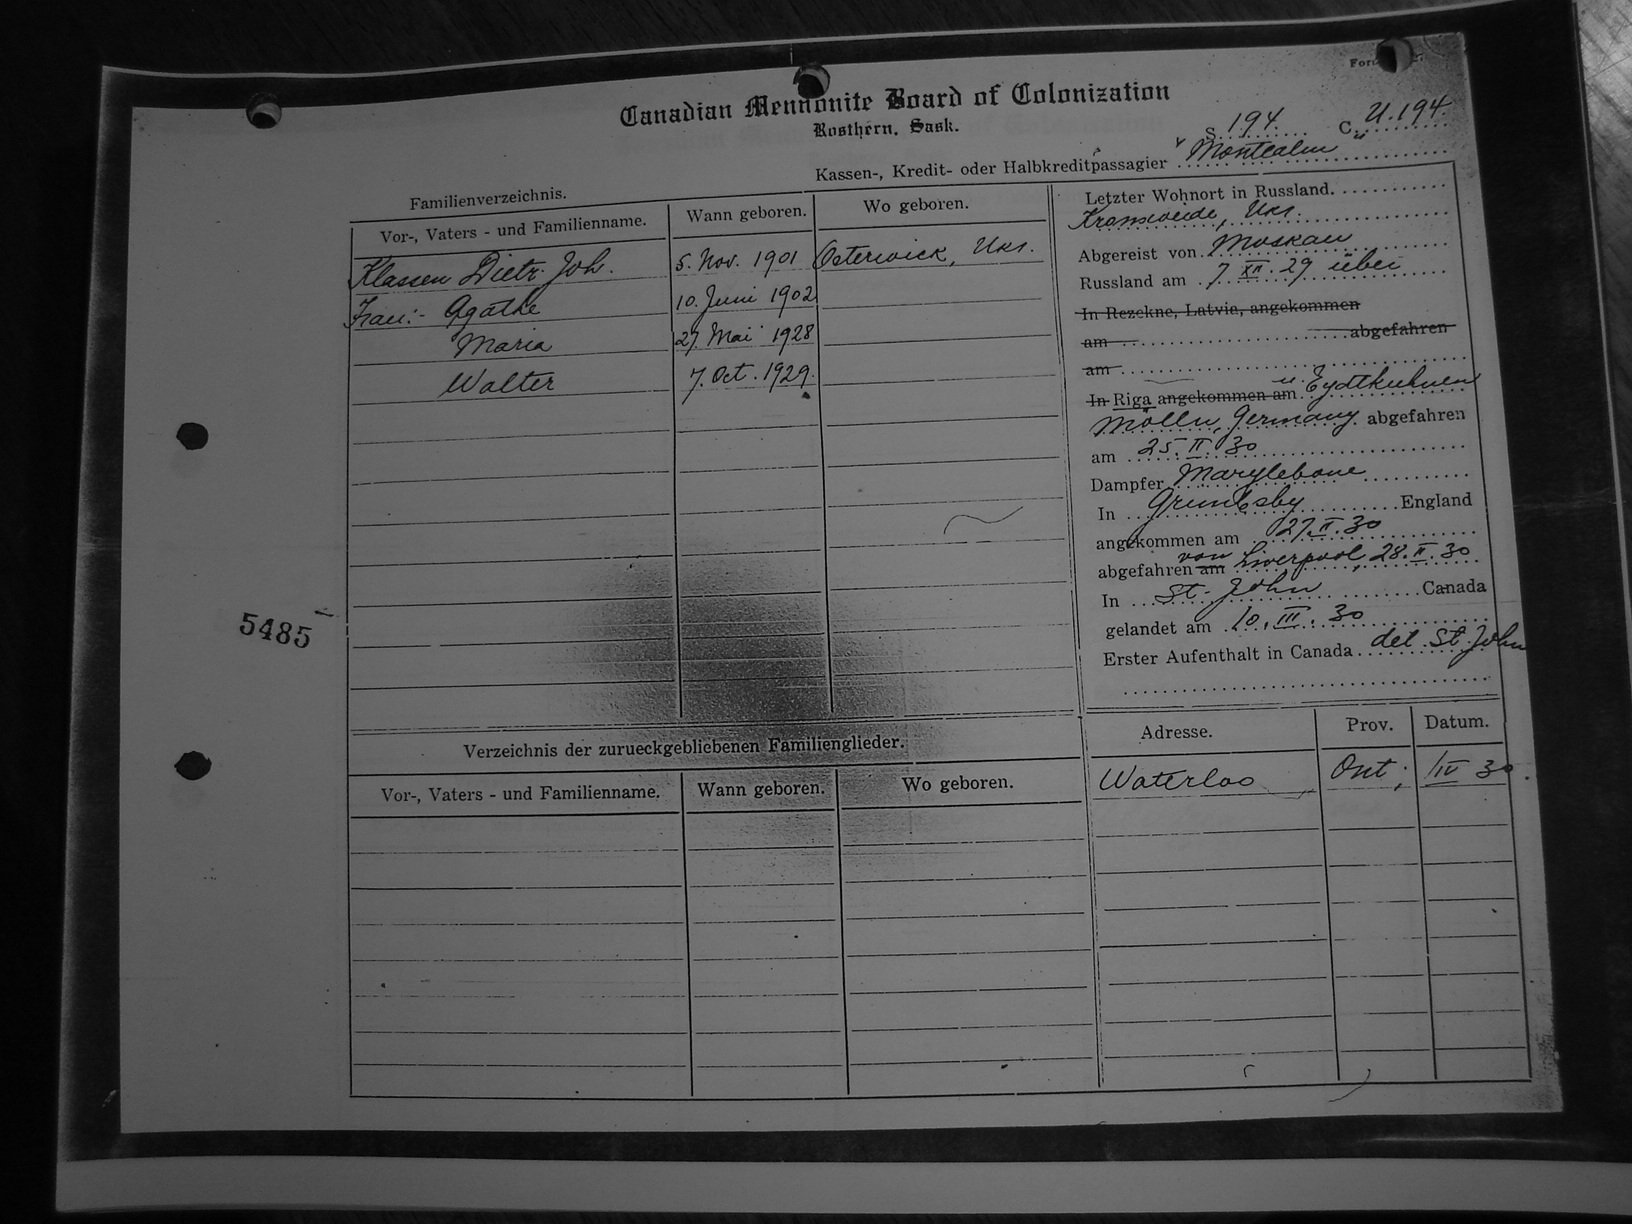 Canadian Mennonite Board of Colonization
Rosthern, Sask.
S. 194 C. U. 194
Kassen-, Kredit- oder Halbkreditpassagier "Montcalm"
Familienverzeichnis.
Vor-, Vaters - und Familienname. Wann geboren. Wo geboren.
Klassen Dietr. Joh. 5. Nov. 1901 Osterwick, Ukr.
Frau:- Agathe 10. Juni 1902
Maria 27. Mai 1928
Walter 7. Oct. 1929.
5485
Letzter Wohnort in Russland.
Kronsweide, Ukr.
Abgereist von Moskau
Russland am 7. XII. 29 über
In Rezekne, Latvia, angekommen
am abgefahren
am
In Riga angekommen am u. Eydtkuhnen
Mölln, Germany abgefahren
am 25. II. 30
Dampfer Marylebone
In Grimsby England
angekommen am 27. II. 30
abgefahren am von Liverpool, 28. II. 30
In St. John Canada
gelandet am 10. III. 30
Erster Aufenthalt in Canada det. St. John
Verzeichnis der zurueckgebliebenen Familienglieder.
Vor-, Vaters - und Familienname. Wann geboren. Wo geboren.
Adresse. Prov. Datum.
Waterloo Ont; IV 30.